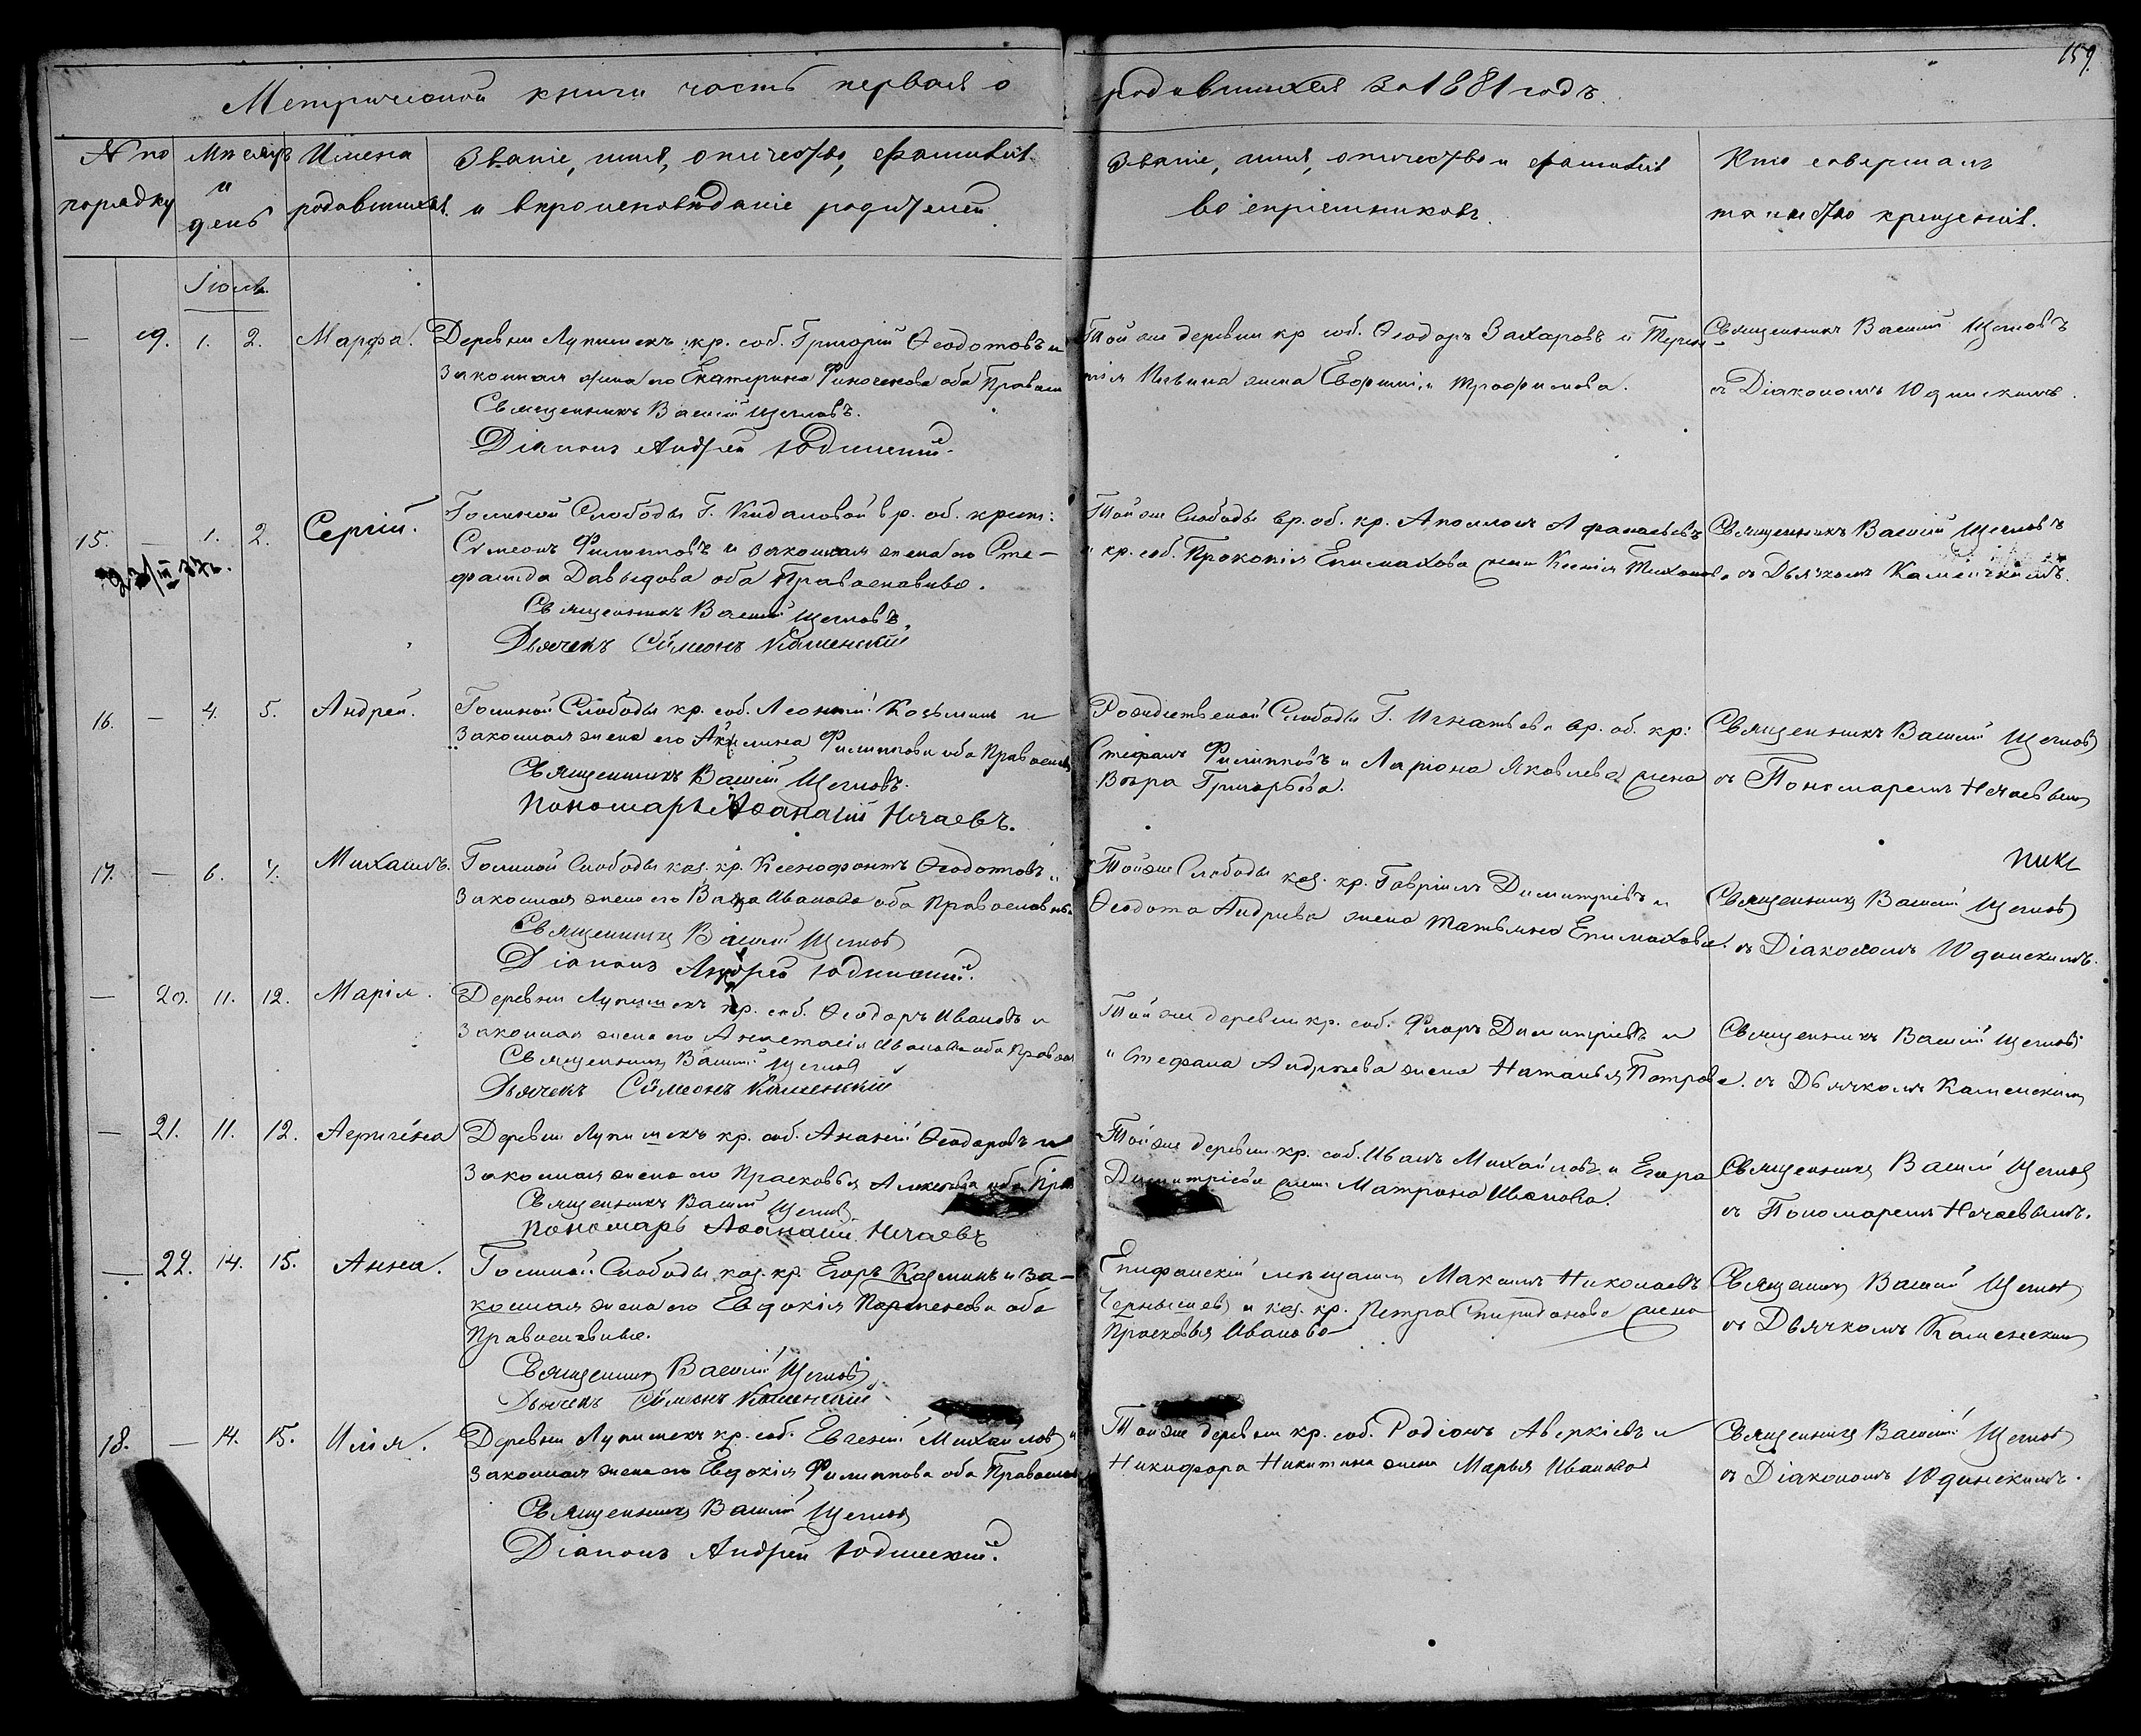 159.
Метрической книги часть первая о родившихся за 1881 годъ.
№ по порядку
Мѣсяцъ и день
Имена родившихся.
Званіе, имя, отчество, фамилія
и вѣроисповѣданіе родителей.
Званіе, имя, отчество и фамилія
воспріемниковъ.
Кто совершалъ
таинство крещенія.
Іюль.
— 19. 1. 2. Марфа.
Деревни Лупишекъ кр. соб. Григорій Ѳеодотовъ и
законная жена его Екатерина оба Правосл
Священникъ Василій Щегловъ.
Діаконъ Андрей Юдинскій.
Той же деревни кр соб. Ѳеодоръ Захаровъ и Терен-
тія жена Евфимія Трофимова.
Священникъ Василій Щегловъ
съ Діакономъ Юдинскимъ.
15. — 1. 2. Сергій.
Голиной Слободы Г. Кидаловой вр. об. крест:
Сѵмеонъ Филипповъ и законная жена его Сте-
фанида Давыдова оба Православные.
Священникъ Василій Щегловъ.
Дьячекъ Сѵмеонъ Каменскій
Той же Слободы вр. об. кр. Аполлонъ Афанасьевъ
и кр. соб. Прокопія Епимахова жена Ксенія Тихонова
Священникъ Василій Щегловъ
съ Дьячкомъ Каменскимъ.
16. — 4. 5. Андрей.
Голиной Слободы кр. соб. Леонтій Козьминъ и
законная жена его Акилина Филиппова оба Православн
Священникъ Василій Щегловъ.
Пономарь Аѳанасій Нечаевъ.
Рождественой Слободы Г. Игнатьева вр. об. кр:
Стефанъ Филипповъ и Лариона Яковлева жена
Вѣра Григорьева.
Священникъ Василій Щегловъ
съ Пономаремъ Нечаевымъ
17. — 6. 7. Михаилъ.
Голиной Слободы каз. кр. Ксенофонтъ Ѳеодотовъ и
законная жена его Ивановa оба Православные
Священникъ Василій Щегловъ
Діаконъ Андрей Юдинскій.
Той же Слободы каз. кр. Гавріилъ Димитріевъ и
Ѳеодота Андреева жена Татьяна Епимахова.
Священникъ Василій Щегловъ
съ Діакономъ Юдинскимъ.
— 20. 11. 12. Марія.
Деревни Лупишекъ кр. соб. Ѳеодоръ Ивановъ и
законная жена его Анастасія Иванова оба Правосл
Священникъ Василій Щегловъ
Дьячекъ Сѵмеонъ Каменскій
Той же деревни кр. соб. Флоръ Димитріевъ и
Стефана Андреева жена Наталья Петрова.
Священникъ Василій Щегловъ
съ Дьячкомъ Каменскимъ
— 21. 11. 12.
Деревни Лупишекъ кр. соб. Ананій Ѳеодоровъ и
законная жена его Прасковья оба Пра
Священникъ Василій Щегловъ
Пономарь Аѳанасій Нечаевъ
Той же деревни кр. соб. Иванъ Михайловъ и Егора
Димитріева жена Матрона Иванова.
Священникъ Василій Щегловъ
съ Пономаремъ Нечаевымъ.
— 22. 14. 15. Анна.
Голиной Слободы каз. кр. Егоръ Козминъ и за-
конная жена его Евдокія Парменова оба
Православные.
Священникъ Василій Щегловъ
Дьячекъ Сѵмеонъ Каменскій
Епифанскій мѣщанинъ Максимъ Николаевъ
Чернышевъ и каз. кр. Петра Спиридонова жена
Прасковья Иванова
Священникъ Василій Щегловъ
съ Дьячкомъ Каменскимъ
18. — 14. 15. Илія.
Деревни Лупишекъ кр. соб. Евсевій Михайловъ и
законная жена его Евдокія Филиппова оба Православн
Священникъ Василій Щегловъ
Діаконъ Андрей Юдинскій.
Той же деревни кр. соб. Родіонъ Аверкіевъ и
Никифора Никитина жена Марья Иванова
Священникъ Василій Щегловъ
съ Діакономъ Юдинскимъ.